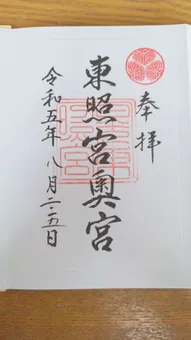 奉拝
東照宮奥宮
令和五年 八月二五日